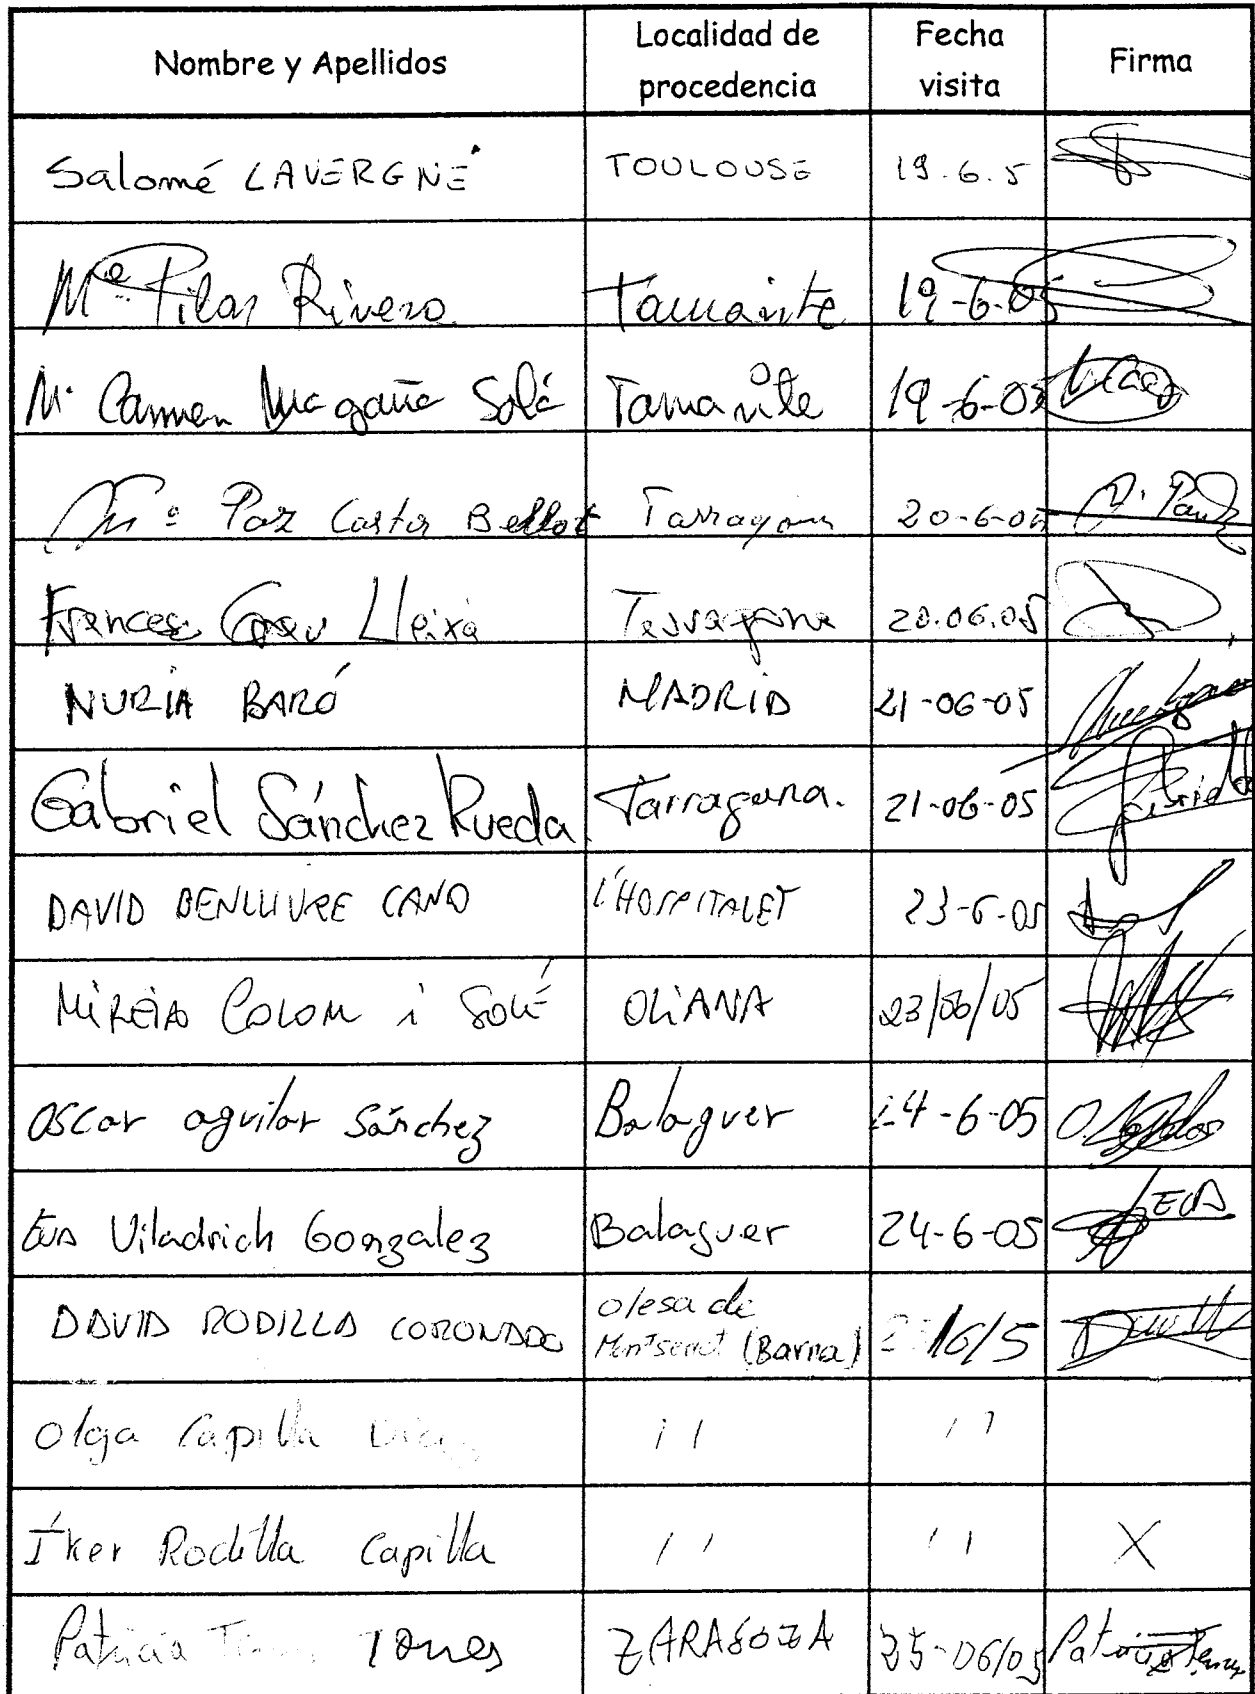 Nombre y Apellidos Localidad de procedencia Fecha visita Firma
Salomé LAVERGNE TOULOUSE 19.6.5
Mª Pilar Rivera Tamarite 19-6-05
Mª Carmen Magaña Solá Tamarite 19-6-05
Mª Paz Castor Bellot Tarragona 20-6-05
Francesc Grau Lleixà Tarragona 20.06.05
NURIA BARÓ MADRID 21-06-05
Gabriel Sánchez Rueda Tarragona. 21-06-05 Gabriel
DAVID BENLLIURE CANO L'HOSPITALET 23-6-05
MIREIA COLOM i SOLÉ OLIANA 23/06/05
Oscar aguilar Sánchez Balaguer 24-6-05
Eva Viladrich Gonzalez Balaguer 24-6-05 EVA
DAVID RODILLA CORONADO Olesa de Montserrat (Barna) /6/5 David
Olga Capilla '' ''
Íker Rodilla Capilla '' '' X
Patricia Torres ZARAGOZA 25-06/05 Patricia